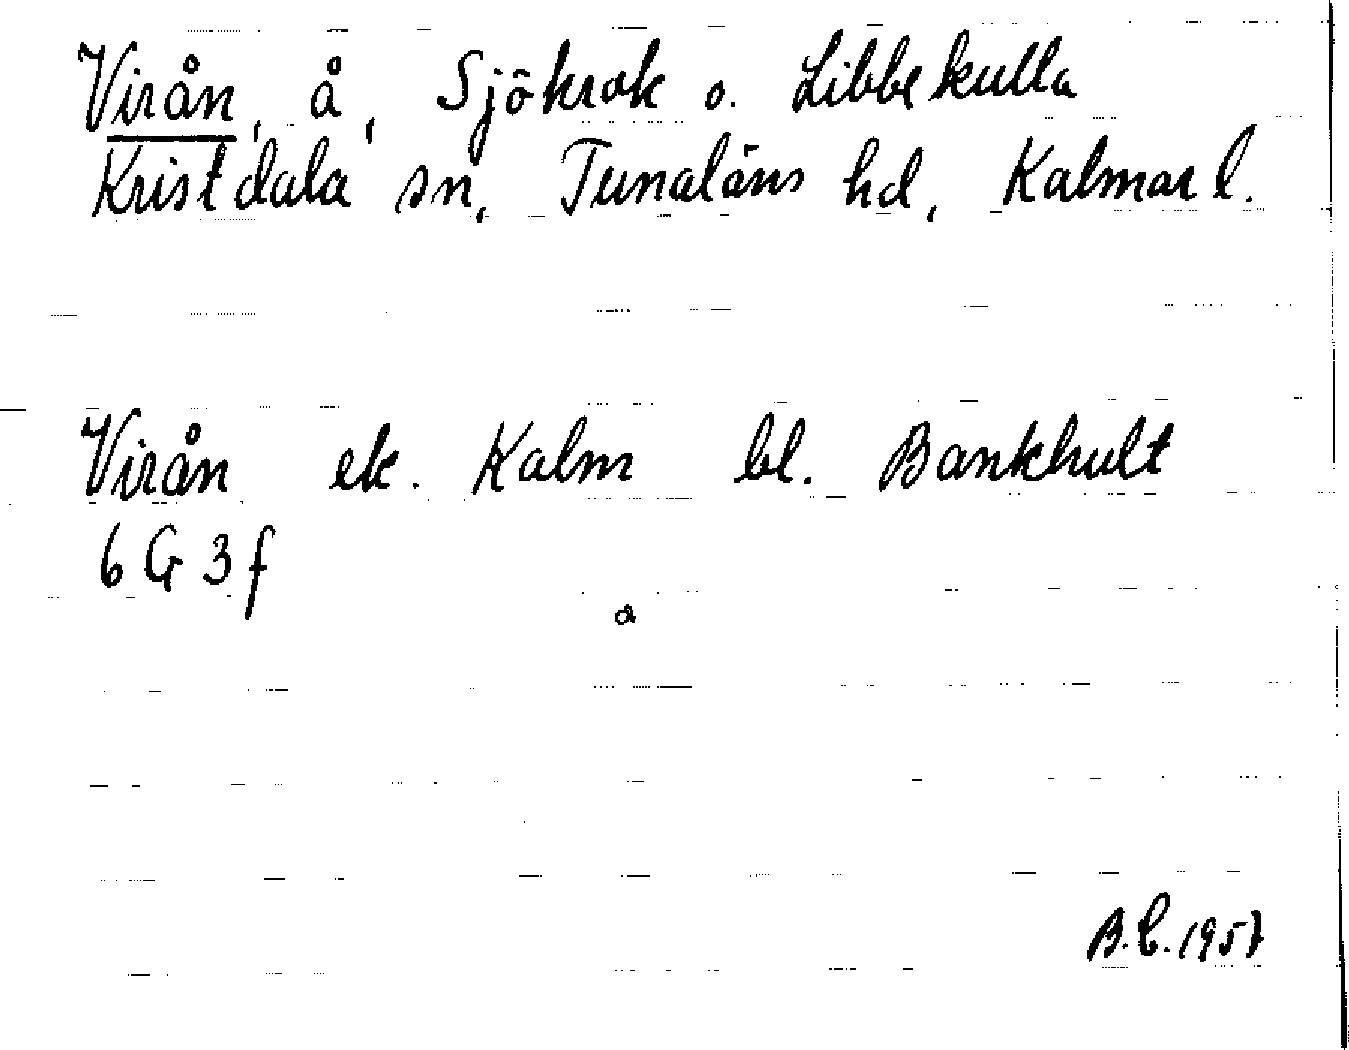 Virån, å, Sjökrok o. Libbekulla
Kristdala sn, Tunaläns hd, Kalmar l.
Virån ek. Kalm bl. Bankhult
6 G 3 f
a
B.C. 1957